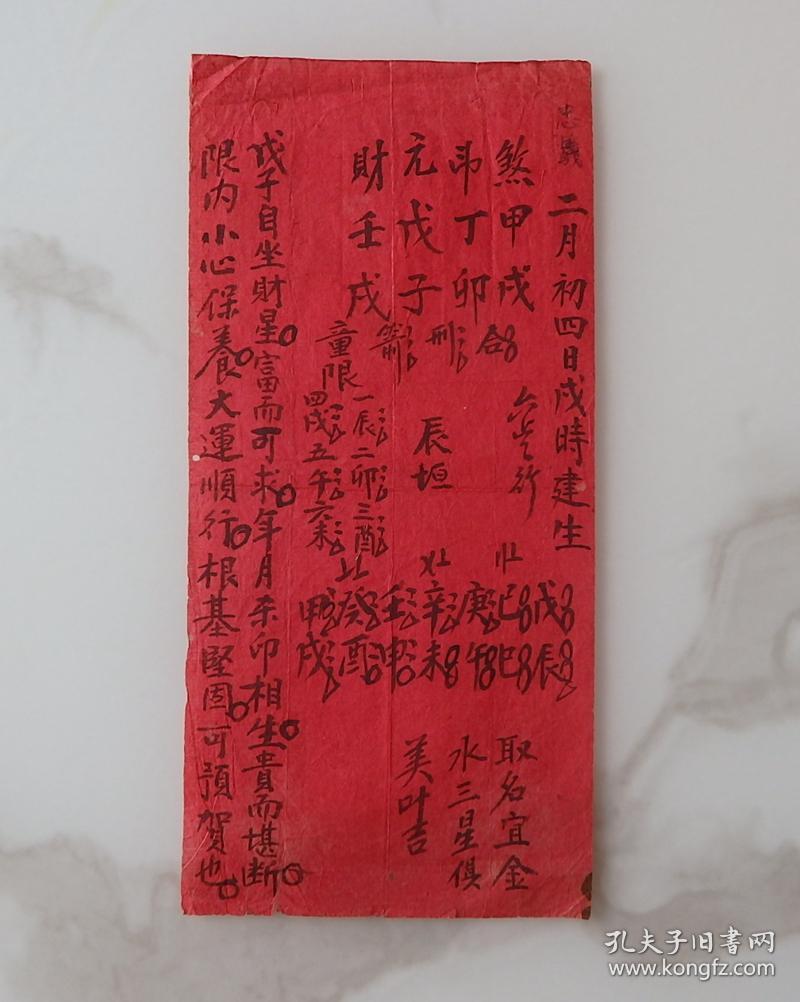 忠義
二月初四日戌時建生
煞甲戌 合
卩丁卯 刑
元戊子
財壬戌
辰垣
戊辰
己巳
庚午
辛未
壬申
癸酉
甲戌
取名宜金
水三星俱
美叶吉
童限
一辰二卯三酉
四戌五午六未
戊子自坐財星富而可求年月未印相生貴而堪断
限内小心保養大運順行根基堅固可預賀也
孔夫子旧書网
www.kongfz.com